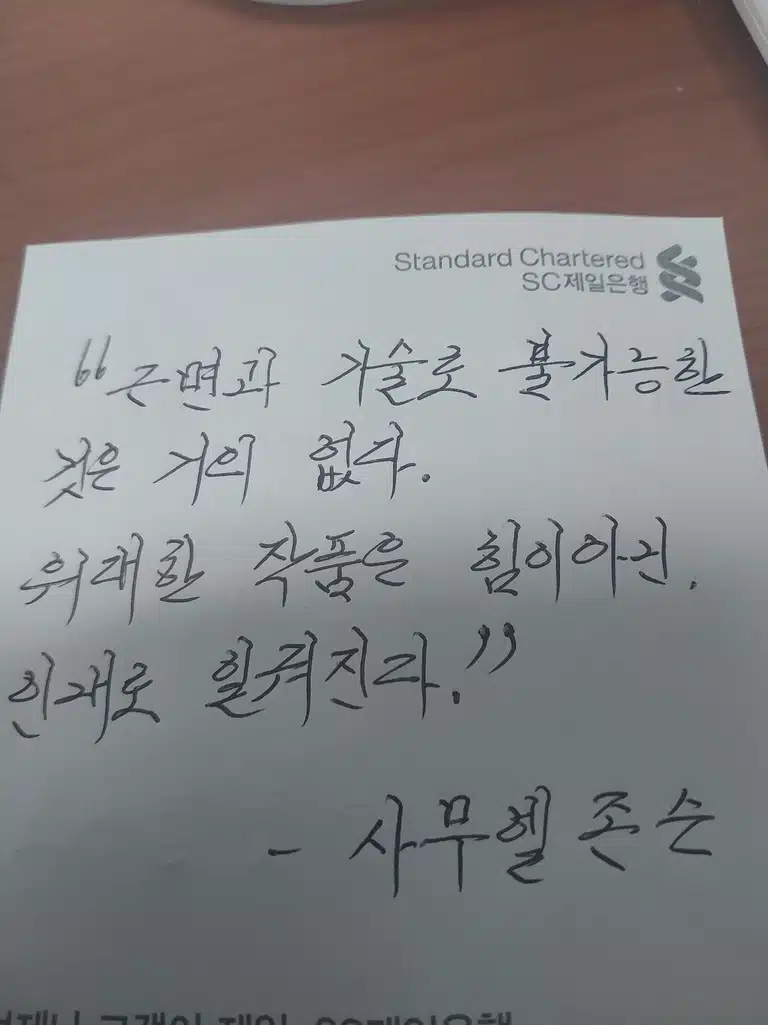 Standard Chartered
SC제일은행
“근면과 기술로 불가능한
것은 거의 없다.
위대한 작품은 힘이아닌.
인내로 일궈진다.”
- 사무엘 존슨